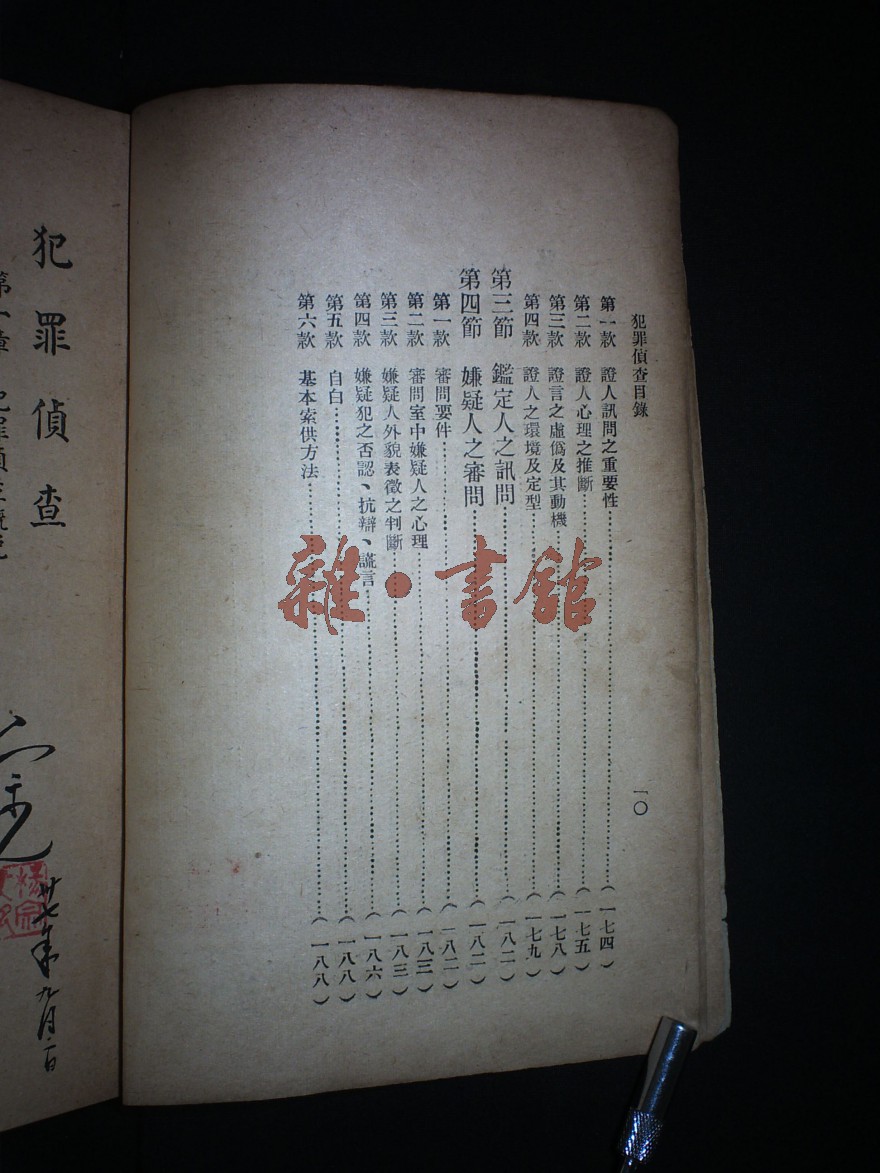 犯罪偵查目錄
一〇
第一款 證人訊問之重要性……(一七四)
第二款 證人心理之推斷……(一七五)
第三款 證言之虛僞及其動機……(一七八)
第四款 證人之環境及定型……(一七九)
第三節 鑑定人之訊問……(一八二)
第四節 嫌疑人之審問……(一八二)
第一款 審問要件……(一八二)
第二款 審問室中嫌疑人之心理……(一八三)
第三款 嫌疑人外貌表徵之判斷……(一八三)
第四款 嫌疑犯之否認、抗辯、謊言……(一八六)
第五款 自白……(一八八)
第六款 基本索供方法……(一八八)
雜·書館
犯罪偵查
廿七年九月一日